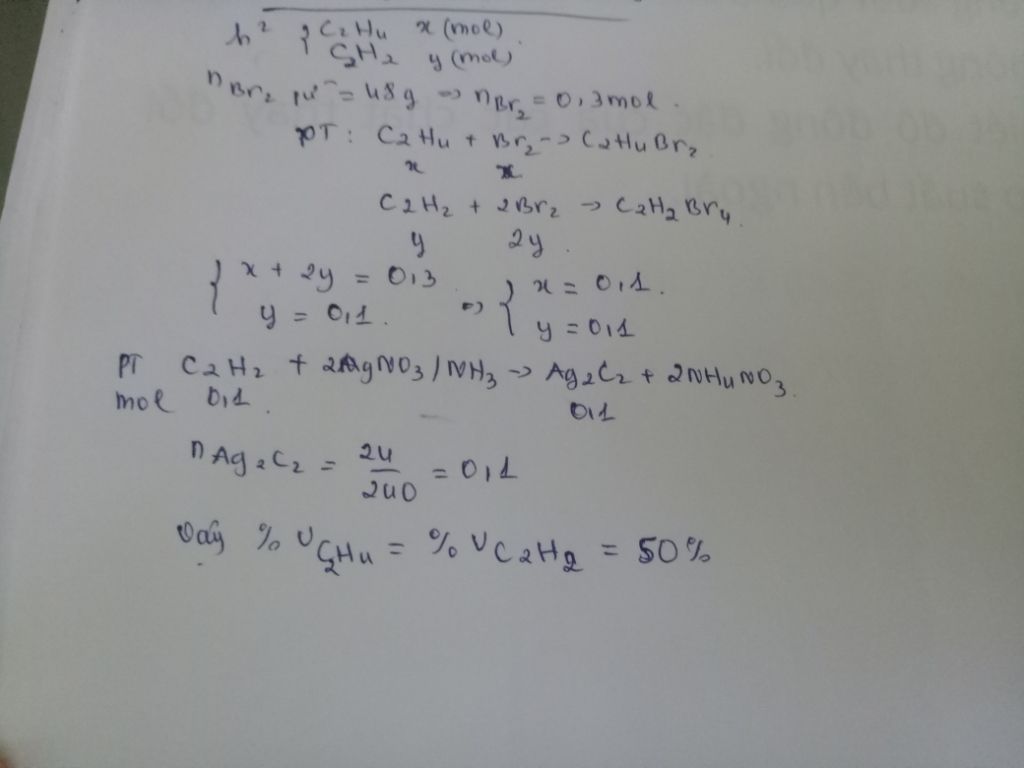 h² { C2H4 x (mol).
C2H2 y (mol)
nBr2 pư = 48g => nBr2 = 0,3 mol.
PT: C2H4 + Br2 -> C2H4Br2
x x
C2H2 + 2Br2 -> C2H2Br4.
y 2y.
{ x + 2y = 0,3 => { x = 0,1.
y = 0,1. y = 0,1
PT C2H2 + 2AgNO3/NH3 -> Ag2C2 + 2NH4NO3.
mol 0,1. 0,1
nAg2C2 = 24/240 = 0,1
Vậy % VC2H4 = % VC2H2 = 50%